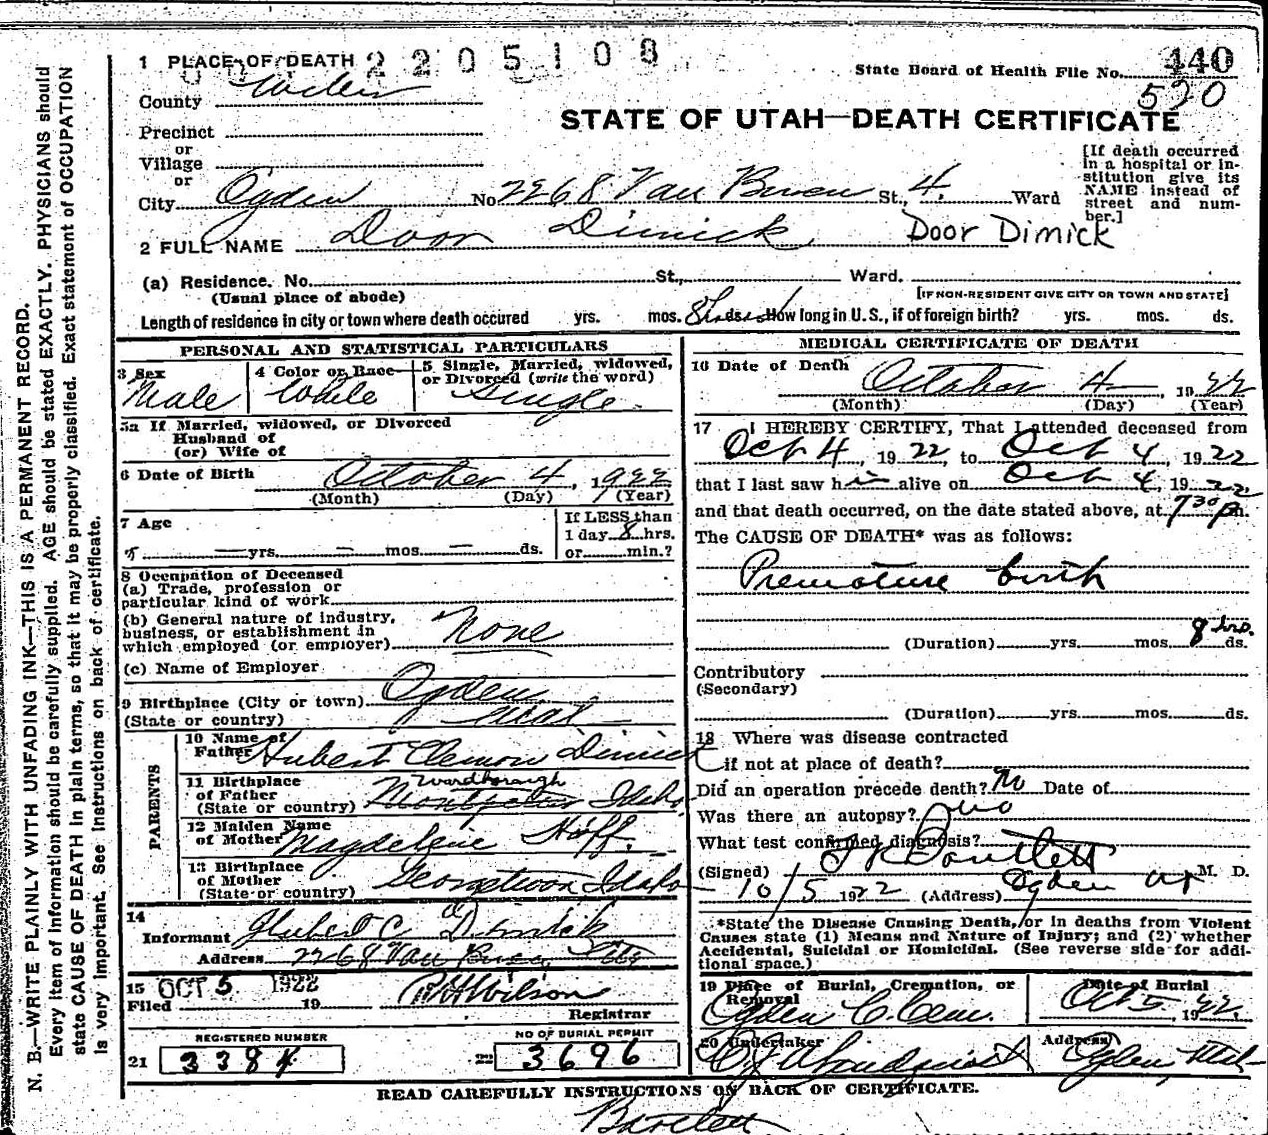 N. B.—WRITE PLAINLY WITH UNFADING INK—THIS IS A PERMANENT RECORD.
Every item of information should be carefully supplied. AGE should be stated EXACTLY. PHYSICIANS should
state CAUSE OF DEATH in plain terms, so that it may be properly classified. Exact statement of OCCUPATION
is very important. See Instructions on back of certificate.
1 PLACE OF DEATH 2205108
State Board of Health File No. 440
520
County Weber
STATE OF UTAH—DEATH CERTIFICATE
Precinct
or
Village
or
[If death occurred
in a hospital or in-
stitution give its
NAME instead of
street and num-
ber.]
City Ogden No 2268 Van Buren St., 4. Ward
2 FULL NAME Door Dimick Door Dimick
(a) Residence. No. St., Ward.
(Usual place of abode) [IF NON-RESIDENT GIVE CITY OR TOWN AND STATE]
Length of residence in city or town where death occured yrs. mos. 8 ds. How long in U.S., if of foreign birth? yrs. mos. ds.
PERSONAL AND STATISTICAL PARTICULARS
3 Sex Male
4 Color or Race White
5 Single, Married, widowed,
or Divorced (write the word)
Single
5a If Married, widowed, or Divorced
Husband of
(or) Wife of
6 Date of Birth October 4, 1922
(Month) (Day) (Year)
7 Age
yrs. mos. ds.
If LESS than
1 day 8 hrs.
or min.?
8 Occupation of Deceased
(a) Trade, profession or
particular kind of work
(b) General nature of industry,
business, or establishment in
which employed (or employer) None
(c) Name of Employer
9 Birthplace (City or town) Ogden
(State or country) Utah
PARENTS
10 Name of
Father Hubert Clemon Dimick
11 Birthplace
of Father Wardborough
(State or country) Montpelier Idaho
12 Maiden Name
of Mother Magdeleine Hoff.
13 Birthplace
of Mother
(State or country) Georgetown Idaho
14
Informant Hubert C Dimick
Address 2268 Van Buren
15 OCT 5 1922
Filed 19 R H Wilson
Registrar
REGISTERED NUMBER
21 3384
NO OF BURIAL PERMIT
22 3696
MEDICAL CERTIFICATE OF DEATH
16 Date of Death October 4, 1922
(Month) (Day) (Year)
17 I HEREBY CERTIFY, That I attended deceased from
Oct 4, 1922, to Oct 4, 1922
that I last saw him alive on Oct 4, 1922
and that death occurred, on the date stated above, at 7 30 p m.
The CAUSE OF DEATH* was as follows:
Premature birth
8 hrs.
(Duration) yrs. mos. ds.
Contributory
(Secondary)
(Duration) yrs. mos. ds.
18 Where was disease contracted
if not at place of death?
Did an operation precede death? No Date of
Was there an autopsy? No
What test confirmed diagnosis?
(Signed) Bartlett M. D.
10/5 1922 (Address) Ogden Ut
*State the Disease Causing Death, or in deaths from Violent
Causes state (1) Means and Nature of Injury; and (2) whether
Accidental, Suicidal or Homicidal. (See reverse side for addi-
tional space.)
19 Place of Burial, Cremation, or
Removal
Ogden C. Cem.
Date of Burial
Oct 5, 1922.
20 Undertaker
Address
Ogden, Utah
READ CAREFULLY INSTRUCTIONS ON BACK OF CERTIFICATE.
Bartlett